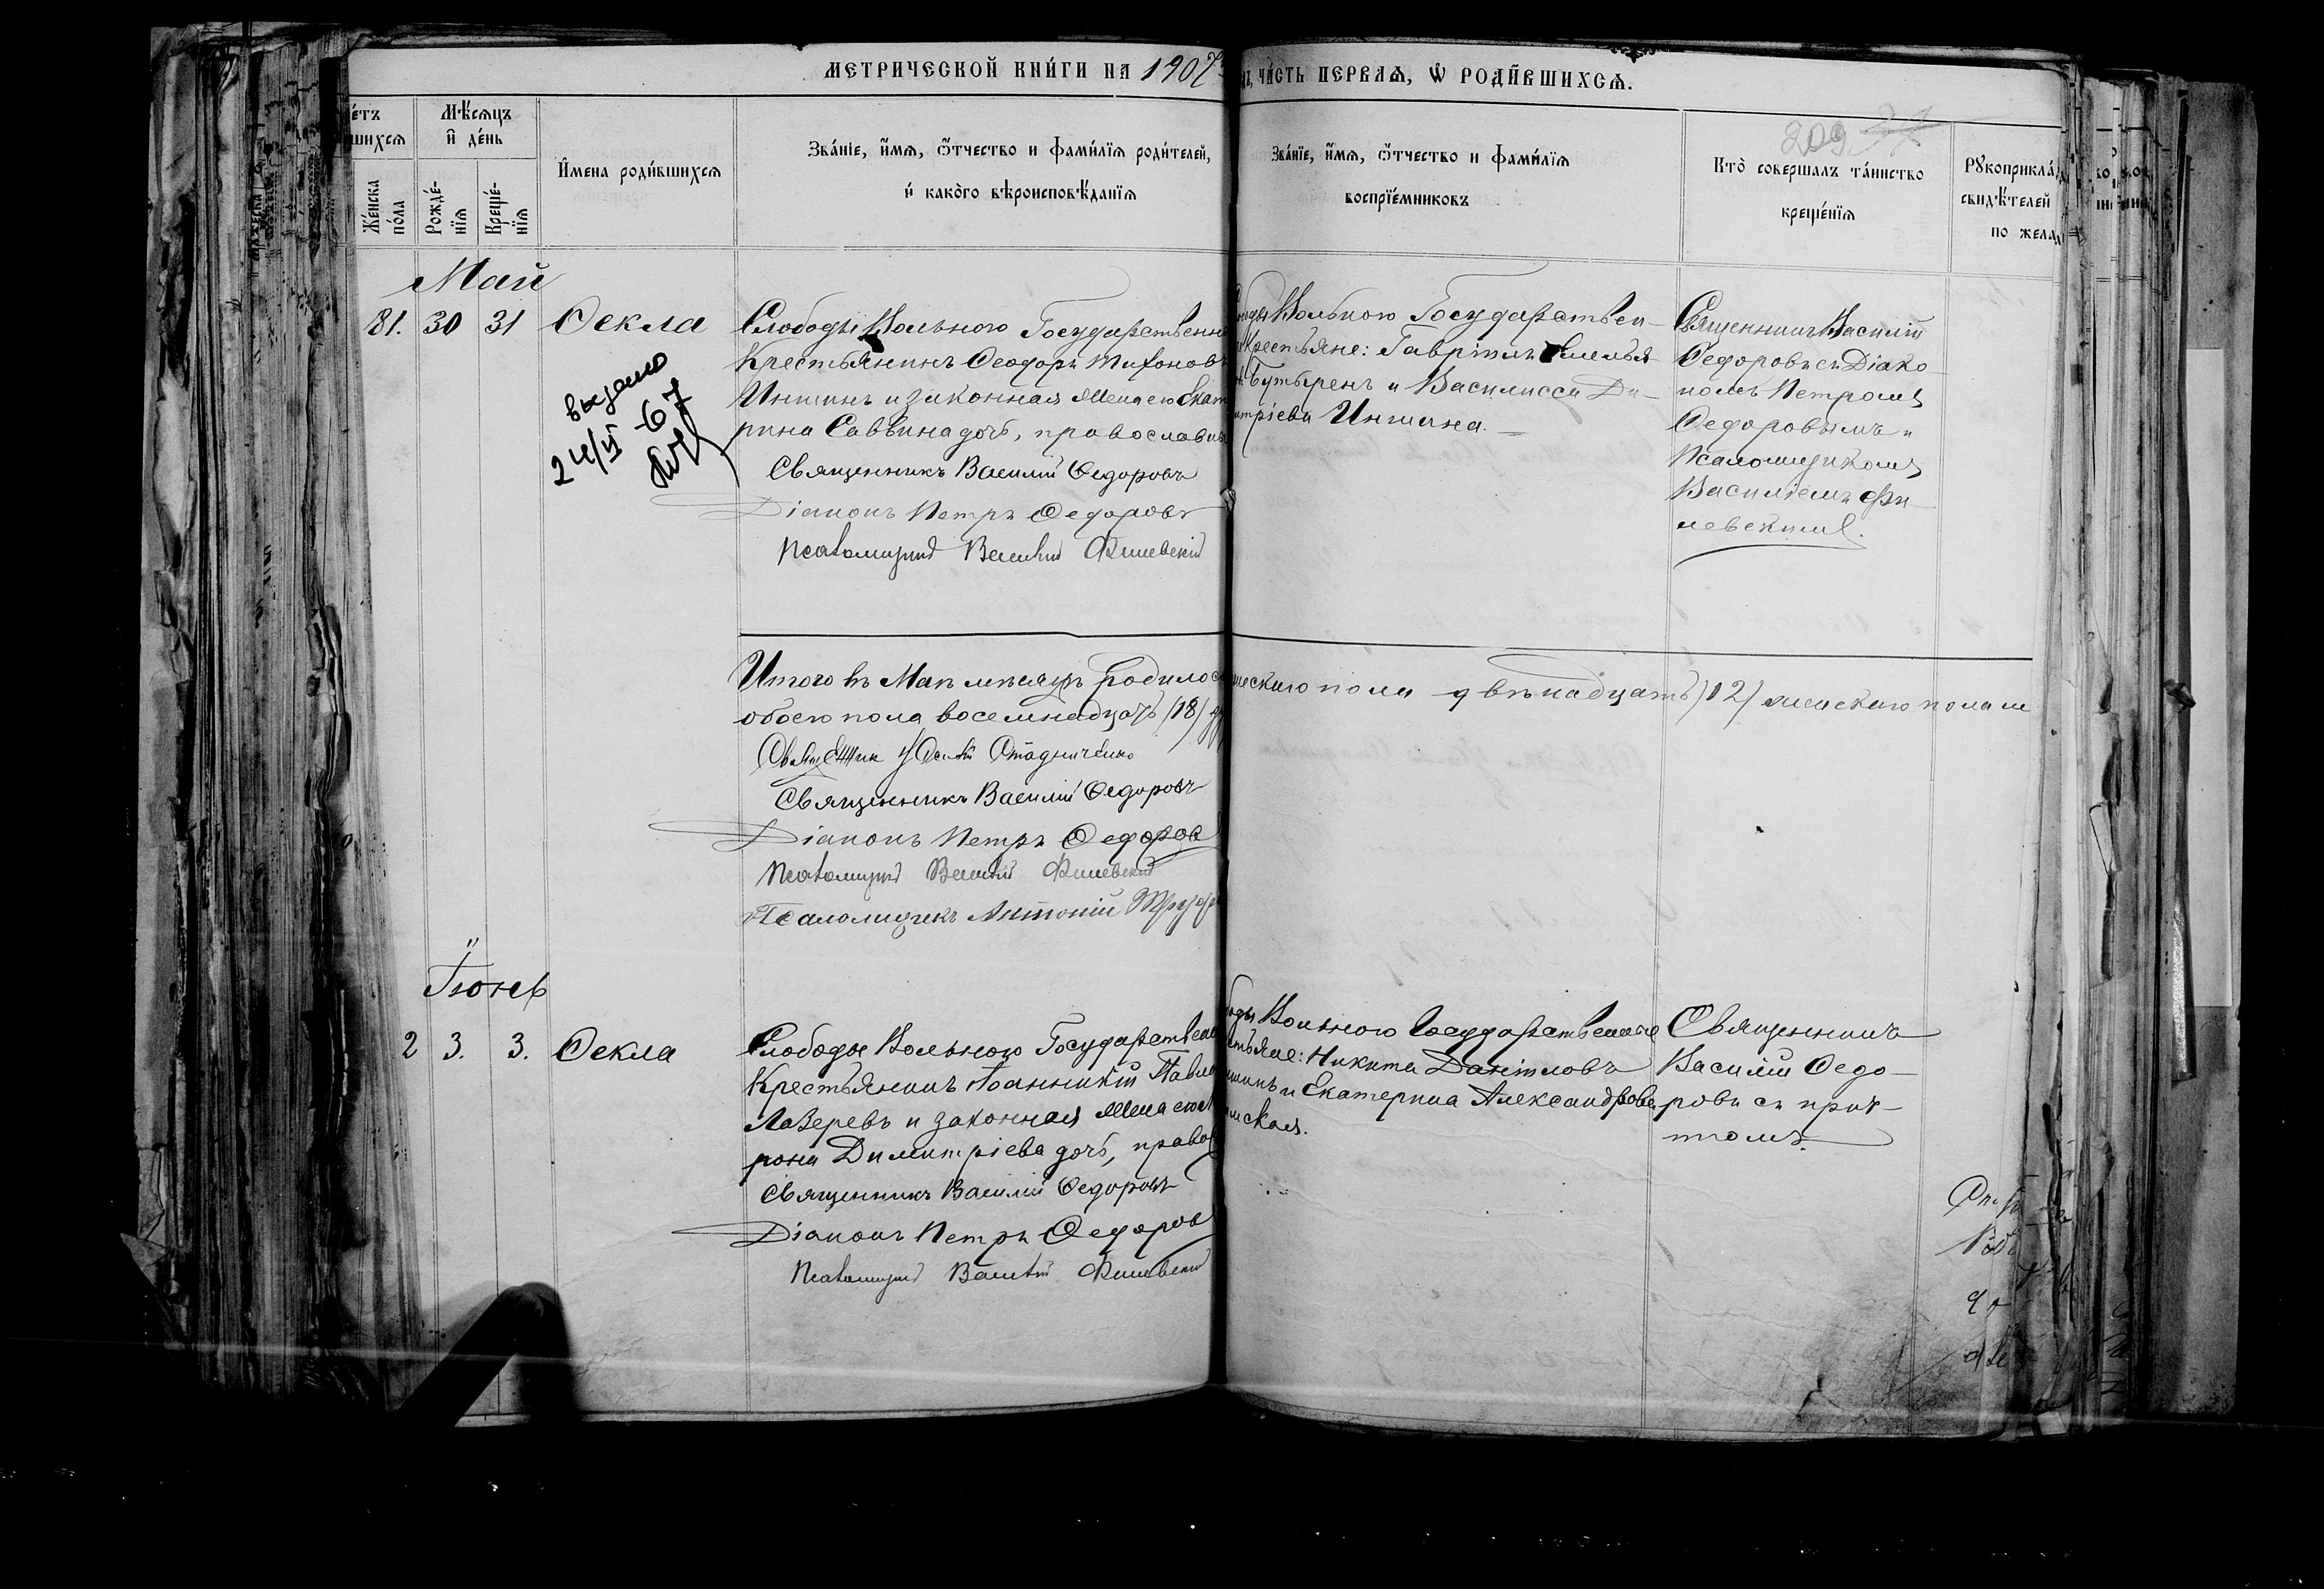 МЕТРИЧЕСКОЙ КНИ́ГИ НА 1907
ЧА́СТЬ ПЕРВАЯ, Ѡ РОДИ́ВШИХСЯ.
209
Мѣ́сяцъ
и де́нь
Же́нска
по́ла
Рожде́-
нїя
Креще́-
нїя
И҆мена роди́вшихся
Зва́нїе, и҆́мя, ѻ҆́тчество и фами́лїя роди́телей,
и҆ како́гѡ вѣроисповѣ́данїя
Зва́нїе, и҆́мя, ѻ҆́тчество и фами́лїя
воспрїе́мниковъ
Кто̀ совершалъ та́инство
креще́нїя
Рꙋкоприкла́д
свидѣ́телей
по жела
Май
81. 30 31 Ѳекла
Слободы Вольного Государственн
Крестьянинъ Ѳеодоръ Тихоновъ
и законная жена его Екате
рина Саввина дочь, православн
Священникъ Василій Ѳедоровъ
Діаконъ Петръ Ѳедоровъ
Псаломщикъ Василій Филевскій
выдано
-67
Вольного Государствен-
Крестьяне: Гавріилъ Емелья
и Василисса Ди-
митріева
Священникъ Василій
Ѳедоровъ съ Діако-
номъ Петромъ
Ѳедоровымъ и
Псаломщикомъ
Василіемъ Фи-
левскимъ.
Итого въ Маѣ мѣсяцѣ родилос
ческого пола двѣнадцать (12) женского пола ш
обоего пола восемнадцать (18) ду
Священник
Священникъ Василій Ѳедоровъ
Діаконъ Петръ Ѳедоров
Псаломщикъ Василій Филевскій
Псаломщикъ Антоній
Іюнь
2 3. 3. Ѳекла
Слободы Вольного Государствен
Крестьянинъ Іоанникій Павло
Лазеревъ и законная жена его М
рона Димитріева дочь, правос
Священникъ Василій Ѳедоровъ
Діаконъ Петръ Ѳедоров
Псаломщикъ Василій Филевскій
Вольного Государственные
Никита Даніиловъ
и Екатерина Александрова
Священникъ
Василій Ѳедо-
ровъ съ прич-
томъ.